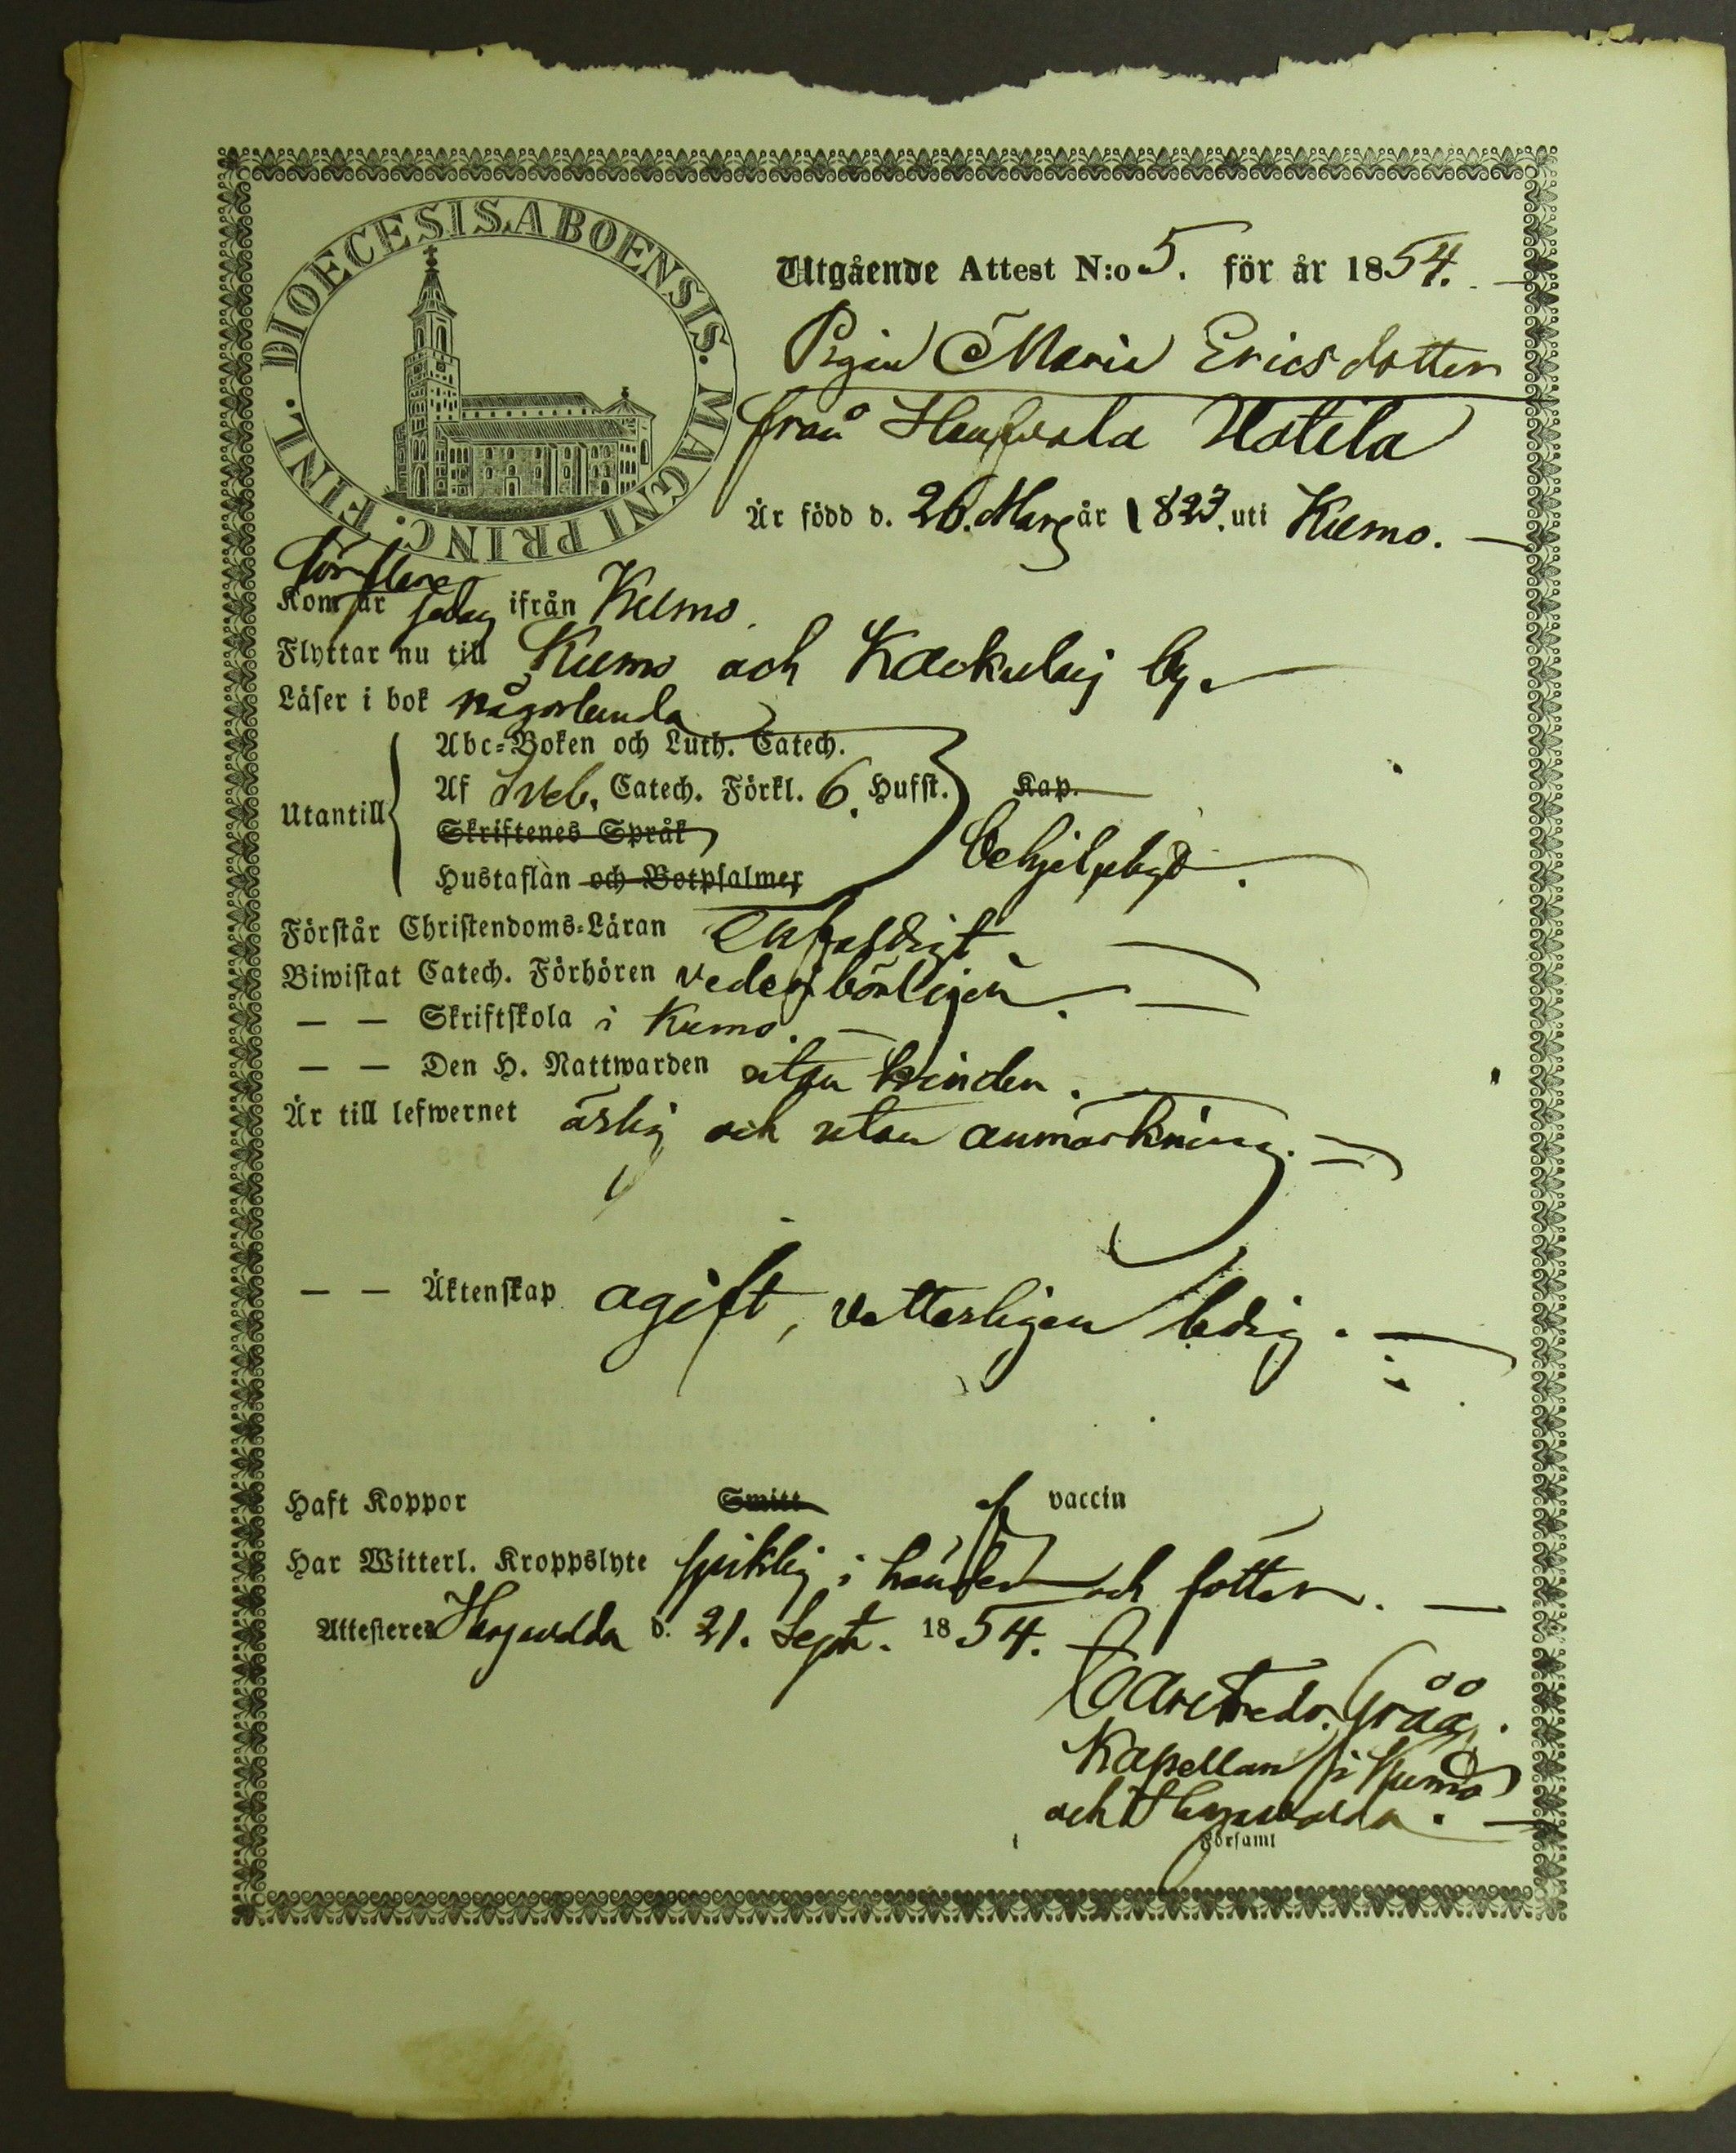 DIOECESIS. ABOENSIS. MAGNI PRINC. FINL.
Utgående Attest N:o 5. för år 1854.
Pigan Maria Ericsdotter
från Harjavalda Uotila
Är född d. 26. Mars år 1823. uti Kumo.
för flere
Kom år sedan ifrån Kumo.
Flyttar nu till Kumo och Kackulaij by.
Läser i bok någorlunda
Abc-Boken och Luth. Catech.
Utantill Af Sveb. Catech. Förkl. 6. Hufst. Kap.
Skriftenes Språk
Hustaflan och Botpsalmer
behjelpligt.
Förstår Christendoms-Läran Enfaldigt
Biwistat Catech. Förhören vederbörligen.
— — Skriftskola i Kumo.
— — Den H. Nattwarden utan hinder.
Är till lefwernet ärlig och utan anmärkning.
— — Äktenskap ogift, vetterligen ledig.
Haft Koppor Smitt af vaccin
Har Witterl. Kroppslyte sjuklig i händer och fötter.
Attesteres Harjavalda d. 21. Sept. 1854.
Carl Fredr. Gråå.
Kapellan i Kumo
och Harjavalda.
Församl